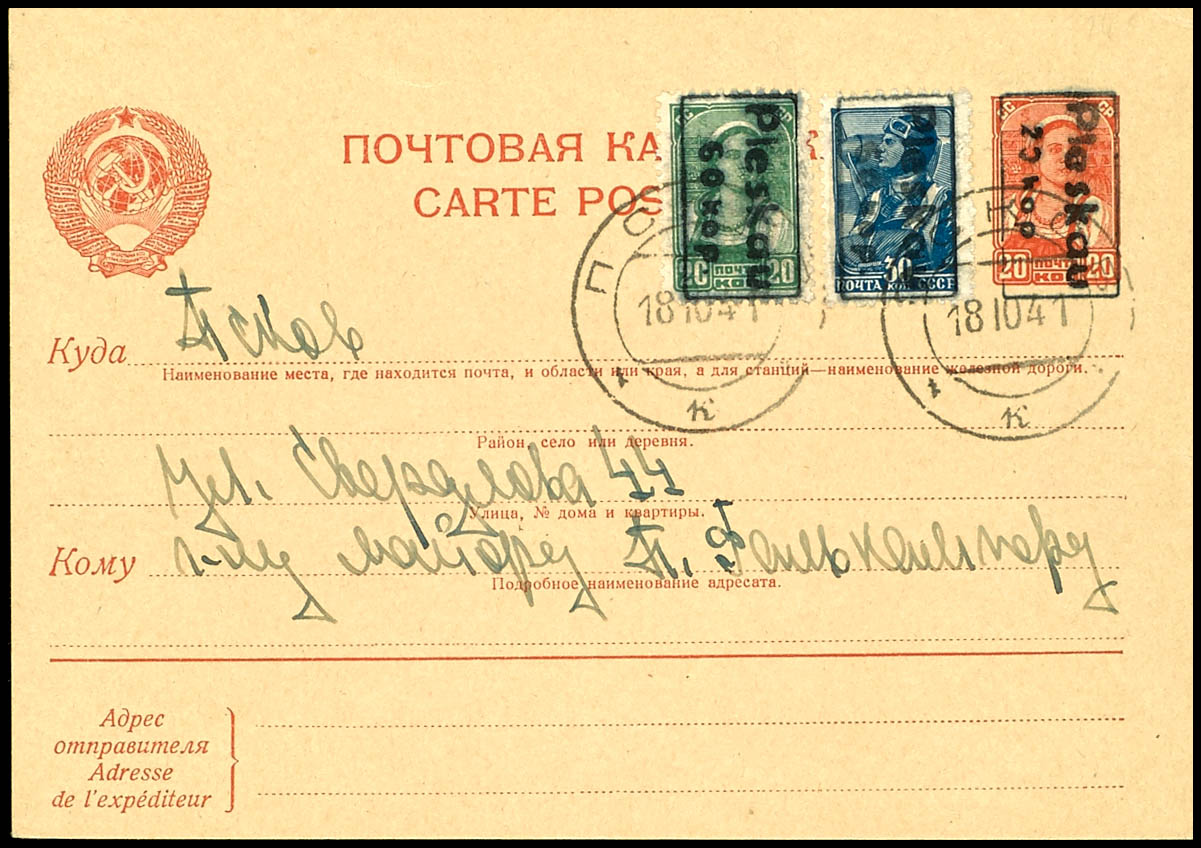 ПОЧТОВАЯ КА
CARTE POS
СС СР
Pleskau
60 kop
20 ПОЧТА КОП 20
Pleskau
30
ПОЧТА КОП. СССР
СС СР
Pleskau
20 kop
20 ПОЧТА КОП 20
18 10 41
к
18 10 41
к
Куда Псков
Наименование места, где находится почта, и области или края, а для станций—наименование железной дороги.
Район, село или деревня.
Ул. Свердлова 44
Улица, № дома и квартиры.
Кому г-ну майору П.
Подробное наименование адресата.
Адрес
отправителя
Adresse
de l'expéditeur